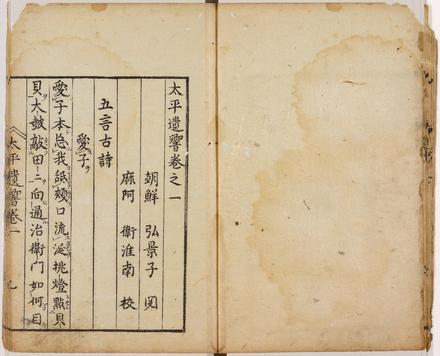 太平遺響卷之一
朝鮮 弘景子 閲
麻阿 衛淮南 校
五言古詩
愛子
愛子本忘我舐頰口流涎挑燈㸃貝
貝大皷敲田二向通治衛门如何目
太平遺響卷一